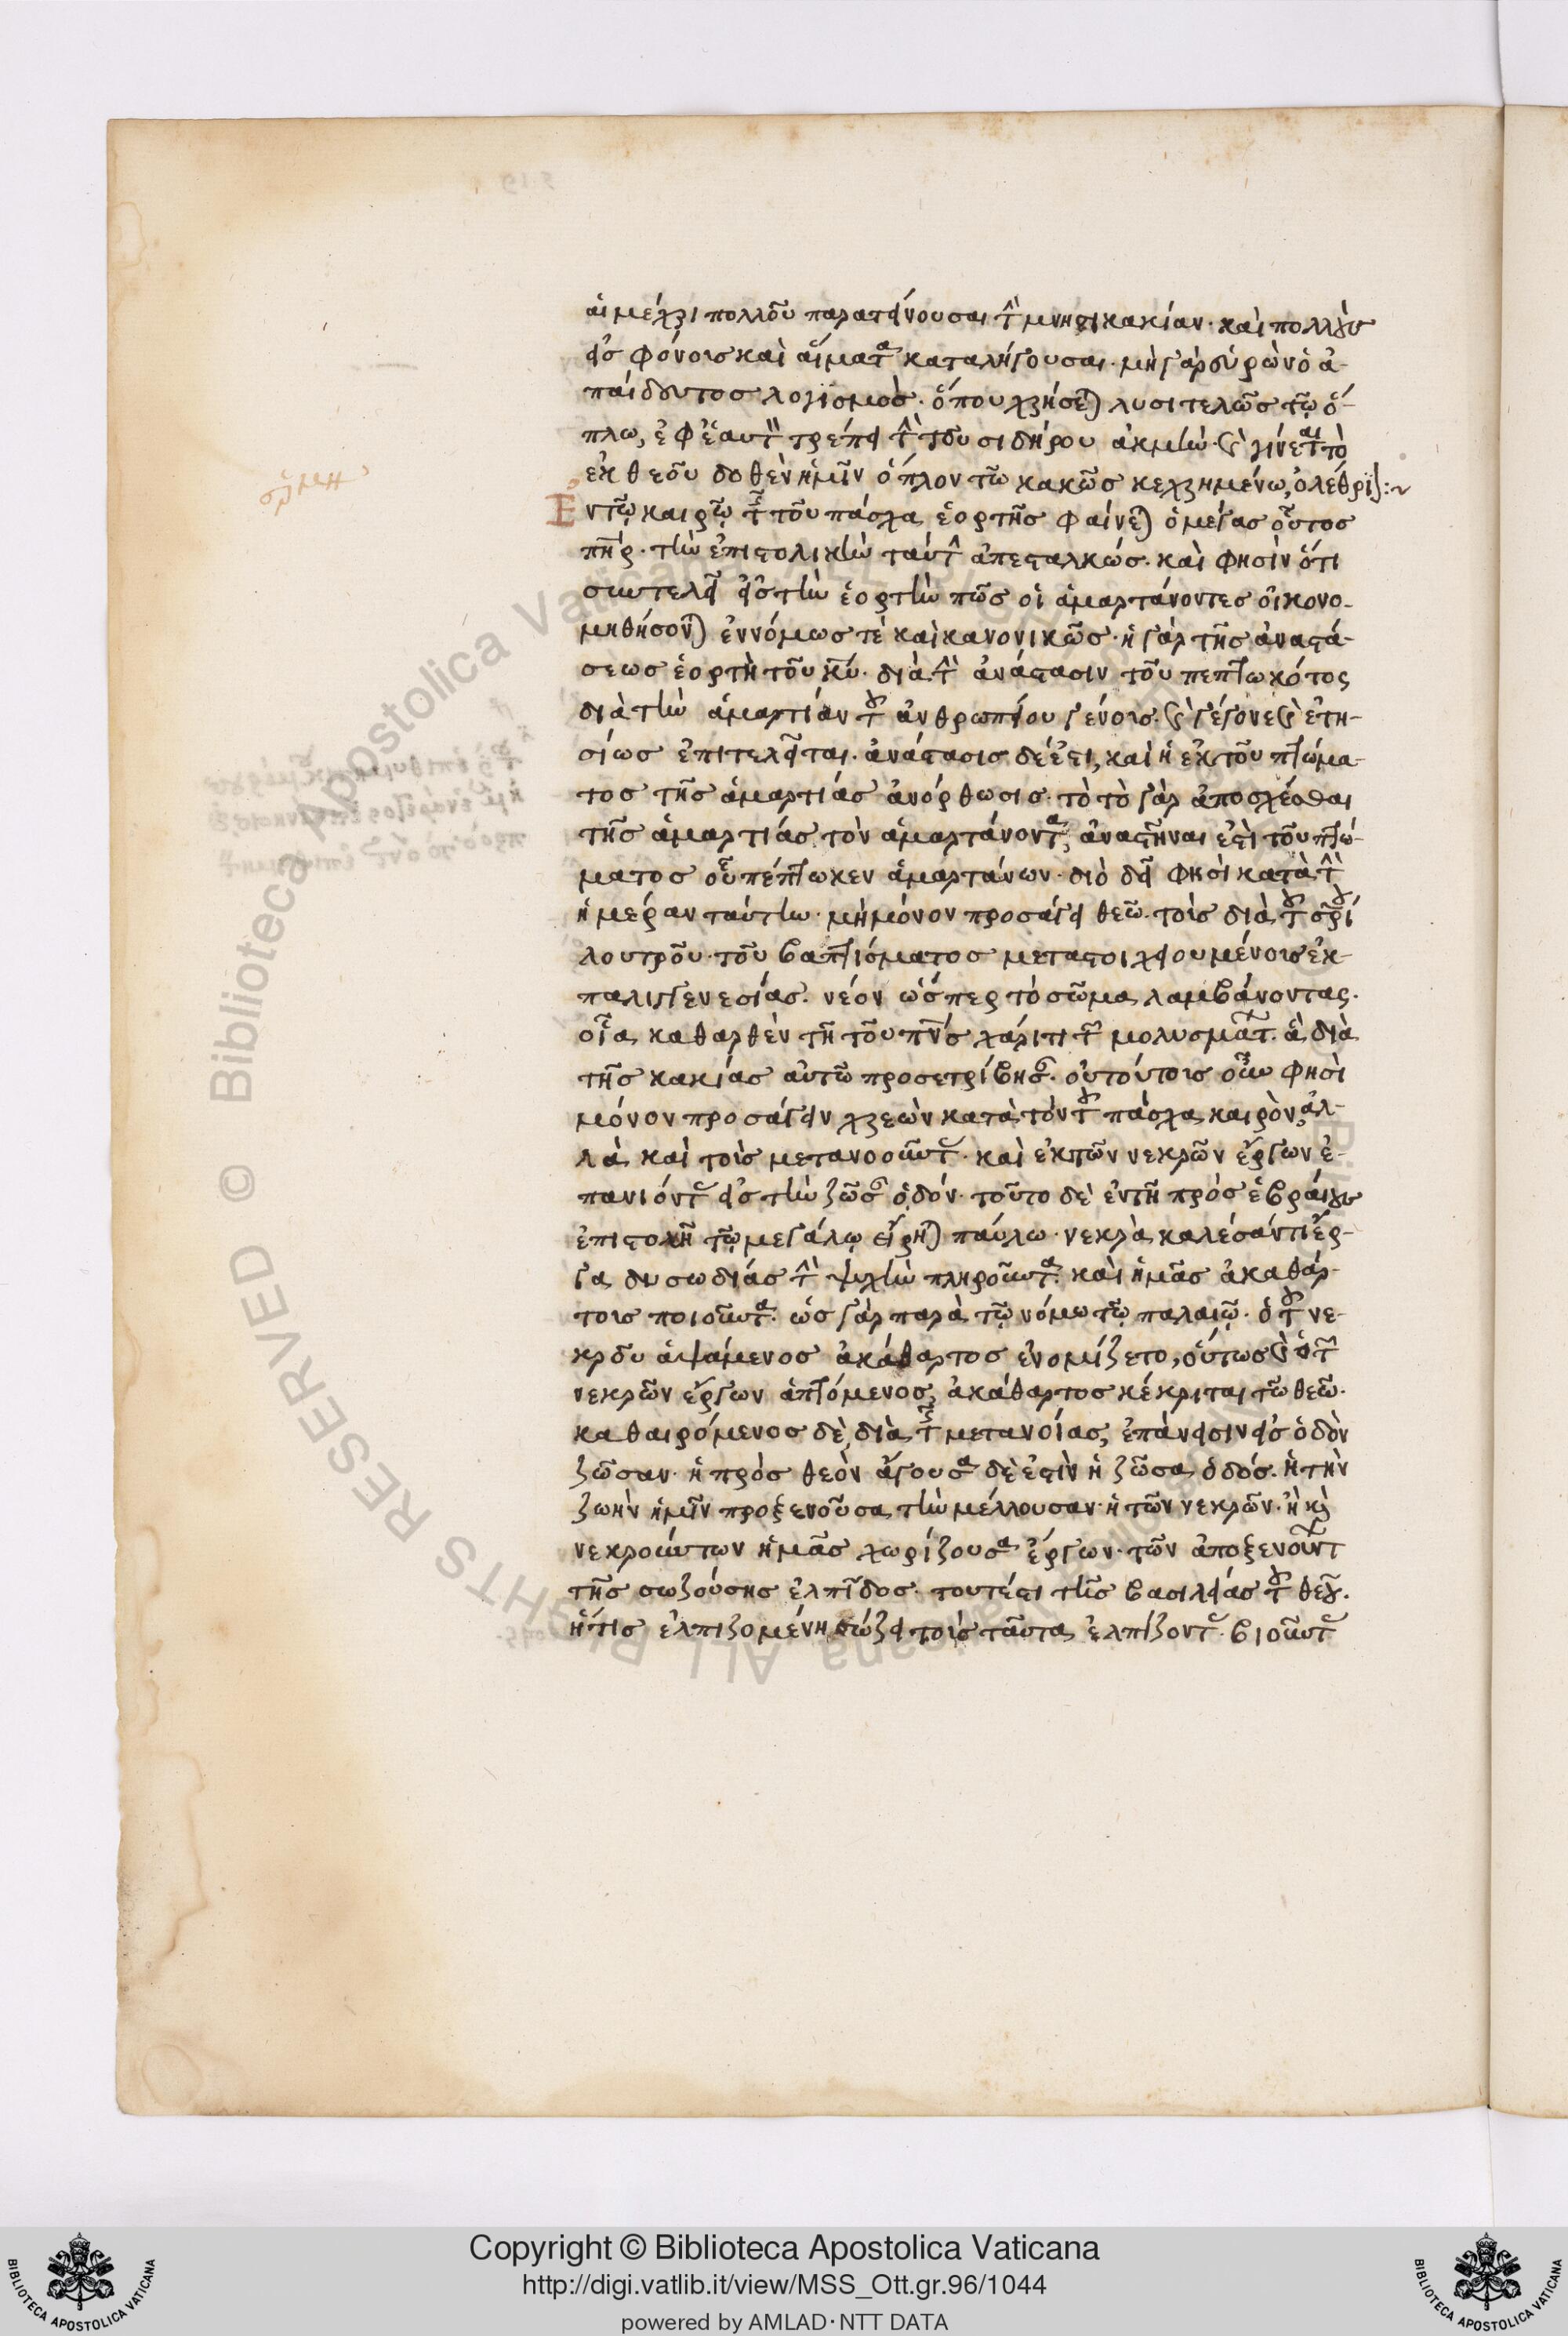 αἱ μέχρι πολλοῦ παρατείνουσαι τὴν μνησικακίαν· καὶ πολλοὺς
εἰς φόνους καὶ αἵματα καταλήγουσαι. μὴ γὰρ εὑρὼν ὁ ἀ-
παίδευτος λογισμὸς. ὅπου χρήσεται λυσιτελῶς τῷ ὅ-
πλω, ἐφ' ἑαυτὸν τρέπει τὴν τοῦ σιδήρου ἀκμὴν· καὶ γίνεται τὸ
ἐκ θεοῦ δοθὲν ἡμῖν ὅπλον τῶ κακῶς κεχρημένω, ὀλέθριον:~
Ἐν τῷ καιρῷ τῆς τοῦ πάσχα ἑορτῆς φαίνεται ὁ μέγας οὗτος
πηρ· τὴν ἐπιστολικὴν ταύτην ἀπεσταλκώς. καὶ φησὶν ὅτι
συντελεῖ εἰς τὴν ἑορτὴν πῶς οἱ ἁμαρτάνοντες οἰκονο-
μηθήσονται ἐννόμως τὲ καὶ κανονικῶς· ἡ γὰρ τῆς ἀναστά-
σεως ἑορτὴ τοῦ κυ· διὰ τὴν ἀνάστασιν τοῦ πεπτωκότος
διὰ τὴν ἁμαρτίαν τοῦ ἀνθρωπίνου γένους. καὶ γέγονε καὶ ἐτη-
σίως ἐπιτελεῖται· ἀνάστασις δέ ἐστι, καὶ ἡ ἐκ τοῦ πτώμα-
τος τῆς ἁμαρτίας ἀνόρθωσις· τὸ τὸ γὰρ ἀποσχέσθαι
τῆς ἁμαρτίας τὸν ἁμαρτάνοντα, ἀναστῆναι ἐστὶ τοῦ πτώ-
ματος οὗ πέπτωκεν ἁμαρτάνων· διὸ δεῖ φησὶ κατὰ τὴν
ἡμέραν ταύτην· μὴ μόνον προσάγειν θεῶ· τοὺς διὰ τοῦ
λουτροῦ· τοῦ βαπτίσματος μεταστοιχειουμένους ἐκ
παλιγγενεσίας. νέον ὥσπερ τὸ σῶμα λαμβάνοντας·
οἷα καθαρθὲν τῆ τοῦ πνς χάριτι τῶν μολυσμάτων. ἃ διὰ
τῆς κακίας αὐτῶ προσετρίβησαν. οὐ τούτους οὖν φησὶ
μόνον προσάγειν χρεὼν κατὰ τὸν τοῦ πάσχα καιρὸν, ἀλ-
λὰ καὶ τοὺς μετανοοῦντας· καὶ ἐκ τῶν νεκρῶν ἔργων ἐ-
πανιόντας εἰς τὴν ζῶσαν ὁδόν· τοῦτο δὲ ἐν τῆ πρὸς ἑβραίους
ἐπιστολῆ τῷ μεγάλῳ εἴρηται παύλω· νεκρὰ καλέσαντι ἔρ-
γα δυσωδίας τὴν ψυχὴν πληροῦντα. καὶ ἡμᾶς ἀκαθάρ-
τους ποιοῦντα. ὡς γὰρ παρὰ τῷ νόμω τῷ παλαιῷ. ὁ τοῦ νε-
κροῦ ἁψάμενος ἀκάθαρτος ἐνομίζετο, οὕτως καὶ ὁ τῶν
νεκρῶν ἔργων ἁπτόμενος, ἀκάθαρτος κέκριται τῶ θεῶ·
καθαιρόμενος δὲ, διὰ τῆς μετανοίας, ἐπάνεισιν εἰς ὁδὸν
ζῶσαν· ἡ πρὸς θεὸν ἄγουσα δὲ ἐστὶν ἡ ζῶσα ὁδός. ἡ τὴν
ζωὴν ἡμῖν προξενοῦσα τὴν μέλλουσαν· ἡ τῶν νεκρῶν· ἢ καὶ
νεκρούντων ἡμᾶς χωρίζουσα ἔργων· τῶν ἀποξενούντων
τῆς σωζούσης ἐλπῖδος· τουτέστι τῆς βασιλείας τοῦ θεοῦ.
ἥτις ἐλπιζομένη σώζει τοὺς ταῦτα ἐλπίζοντας. βιοῦντας
Copyright © Biblioteca Apostolica Vaticana
http://digi.vatlib.it/view/MSS_Ott.gr.96/1044
powered by AMLAD·NTT DATA